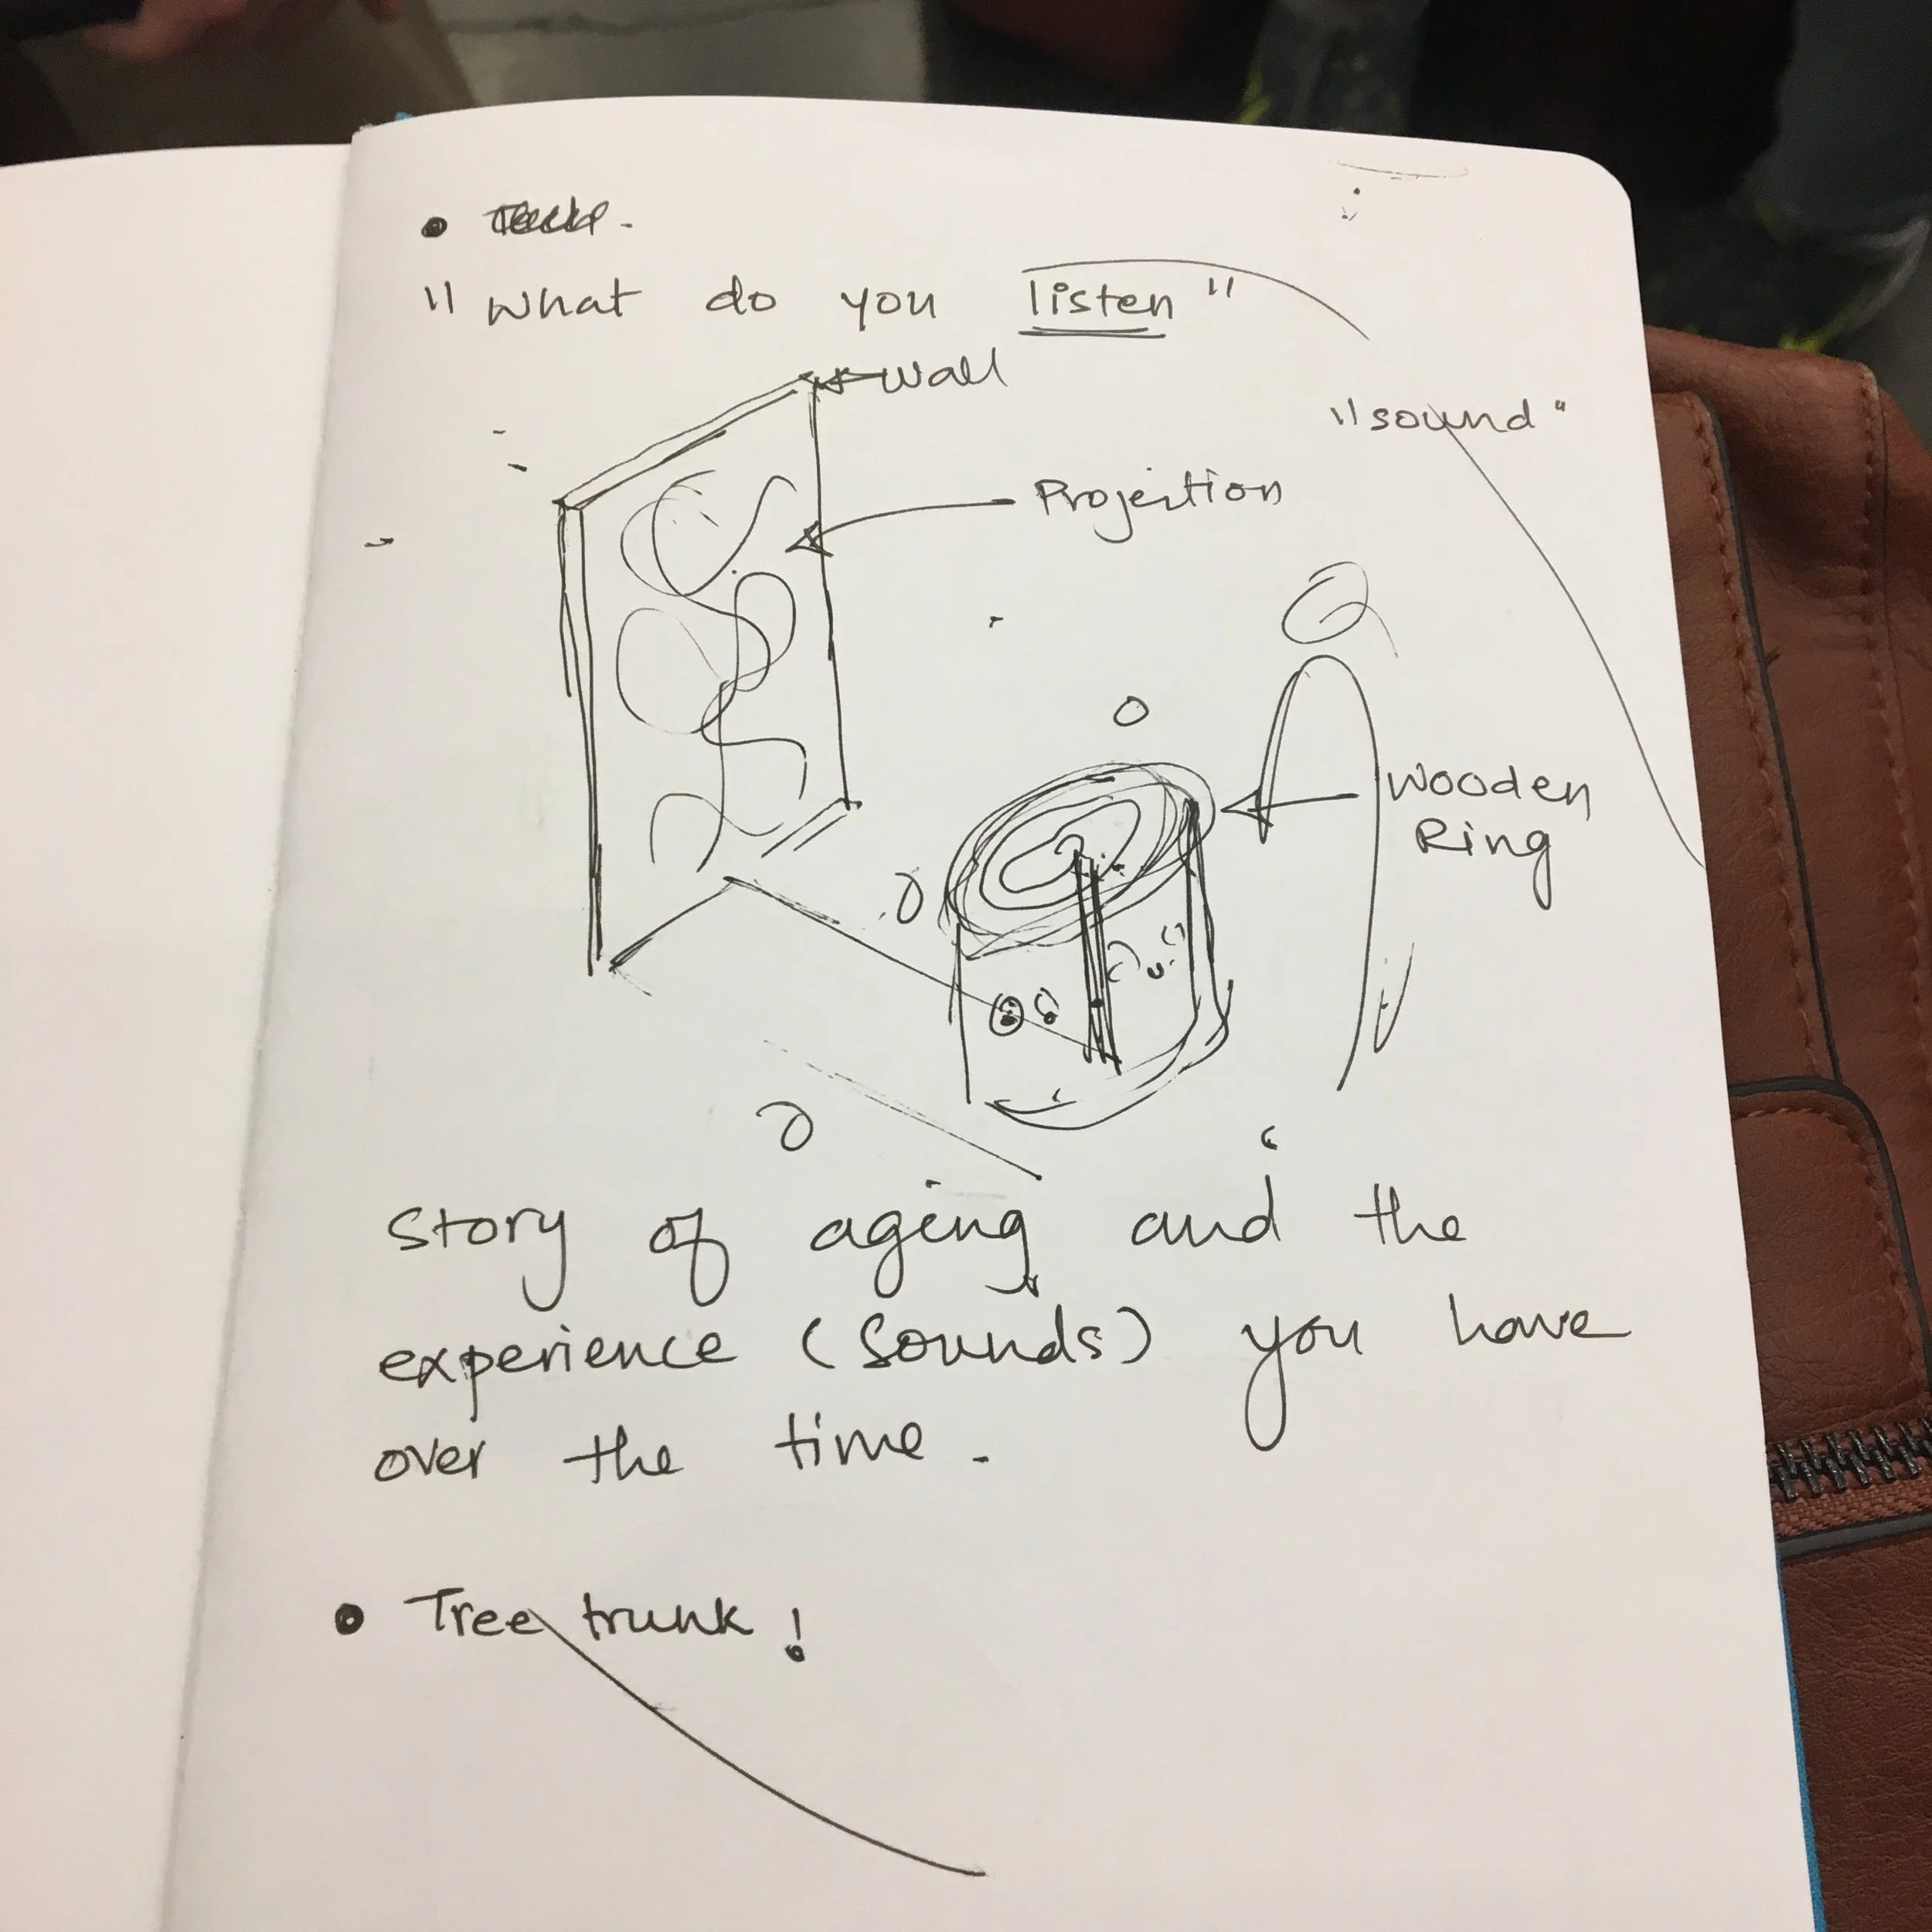 "What do you listen"
Wall
"sound"
Projection
Wooden
Ring
Story of aging and the
experience (sounds) you have
over the time.
• Tree trunk!